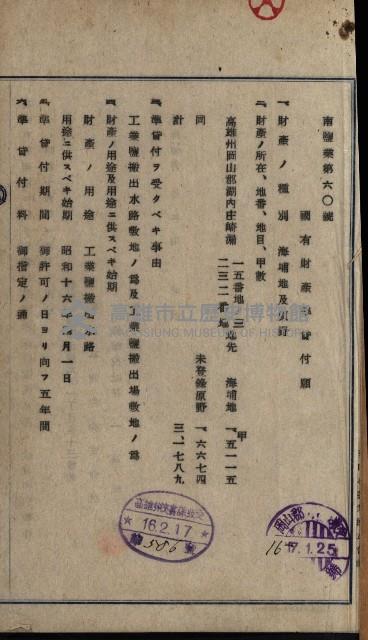 南鹽業第六〇號
國有財產準貸付願
一、財產ノ種別　海埔地及原野
二、財產ノ所在、地番、地目、甲數
高雄州岡山郡湖內庄崎漏
一五番地ノ三
二三二番地　地先　海埔地　一、五一一五
甲
同　未登錄原野　一、六六七四
計　三、一七八九
三、準貸付ヲ受クベキ事由
工業鹽搬出水路敷地ノ為及工業鹽搬出場敷地ノ為
四、財產ノ用途及用途ニ供スベキ始期
財產ノ用途　工業鹽搬出水路
用途ニ供スベキ始期　昭和十六年　月一日
五、準貸付期間　御許可ノ日ヨリ向フ五年間
六、準貸付料　御指定ノ通
高雄市立歷史博物館
KAOHSIUNG MUSEUM OF HISTORY
16.2.17
第586號
岡山郡
16
1.25